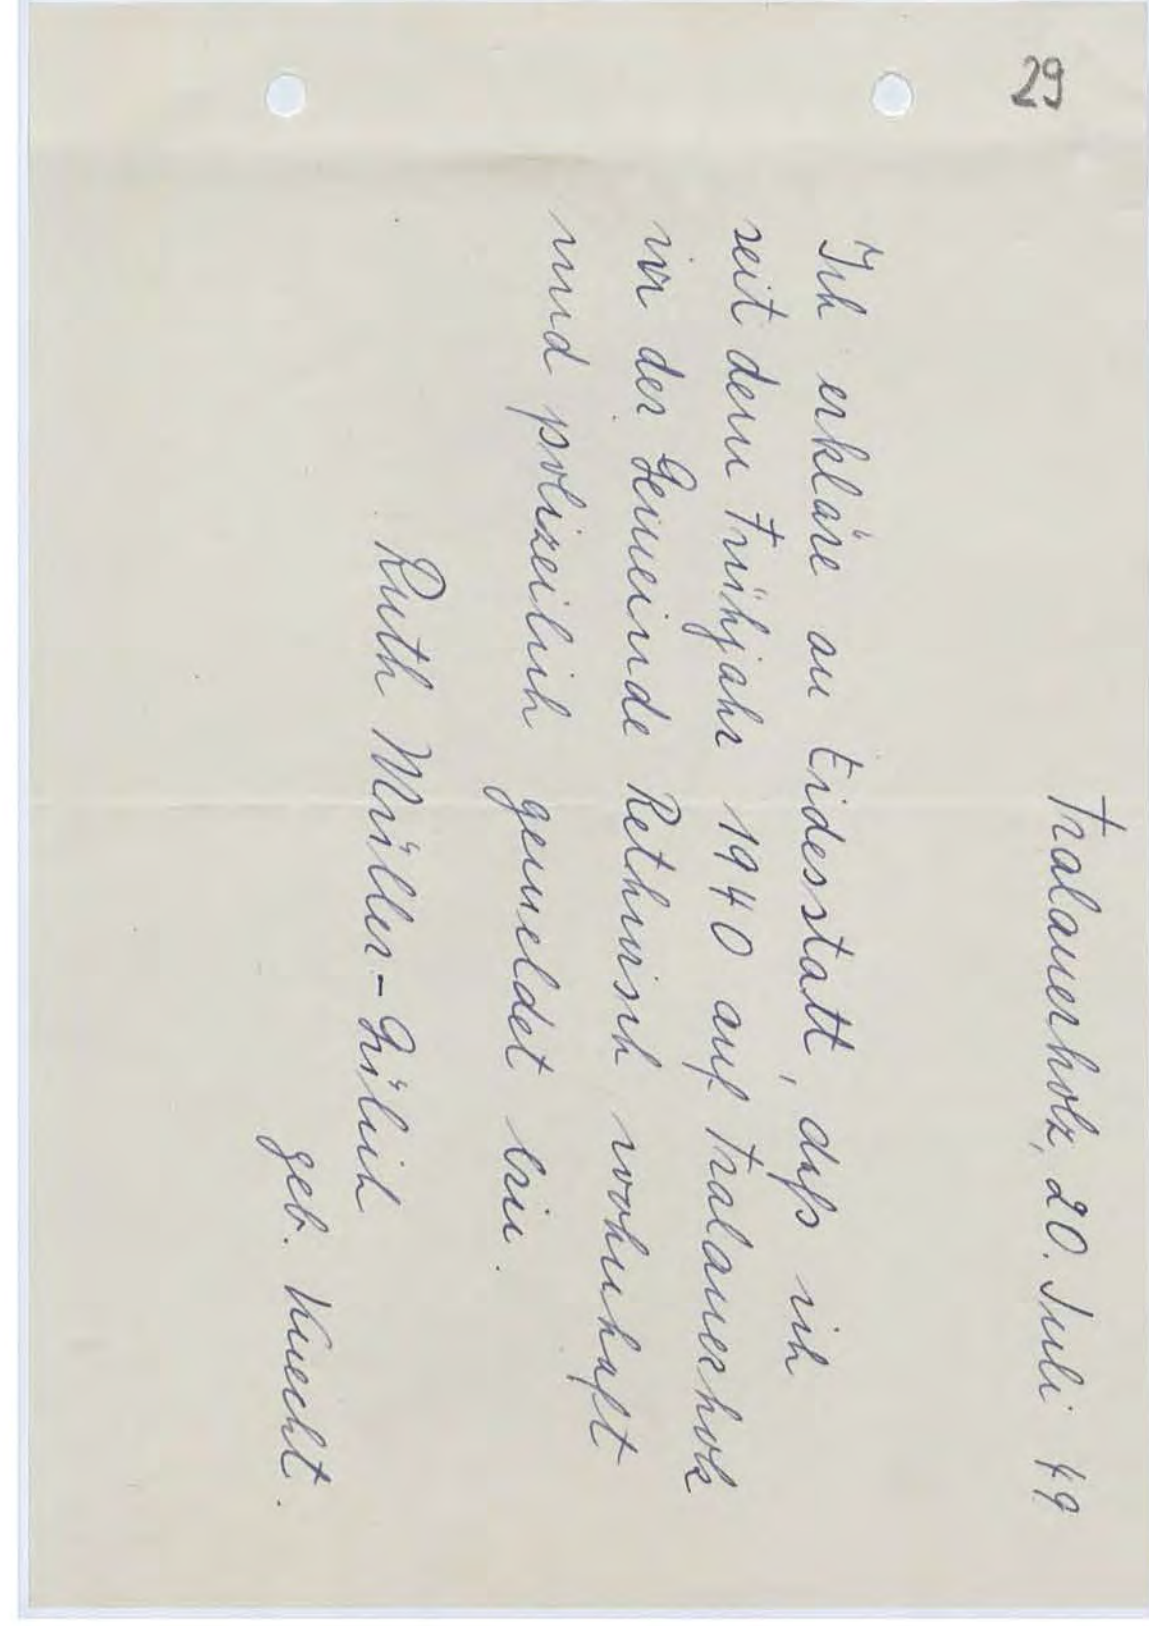 29
Tralauerholz, 20. Juli 49
Ich erkläre an Eidesstatt, daß ich
seit dem Frühjahr 1940 auf Tralauerholz
in der Gemeinde Rethwisch wohnhaft
und polizeilich gemeldet bin.
Ruth Müller-Gülich
geb. Knecht.